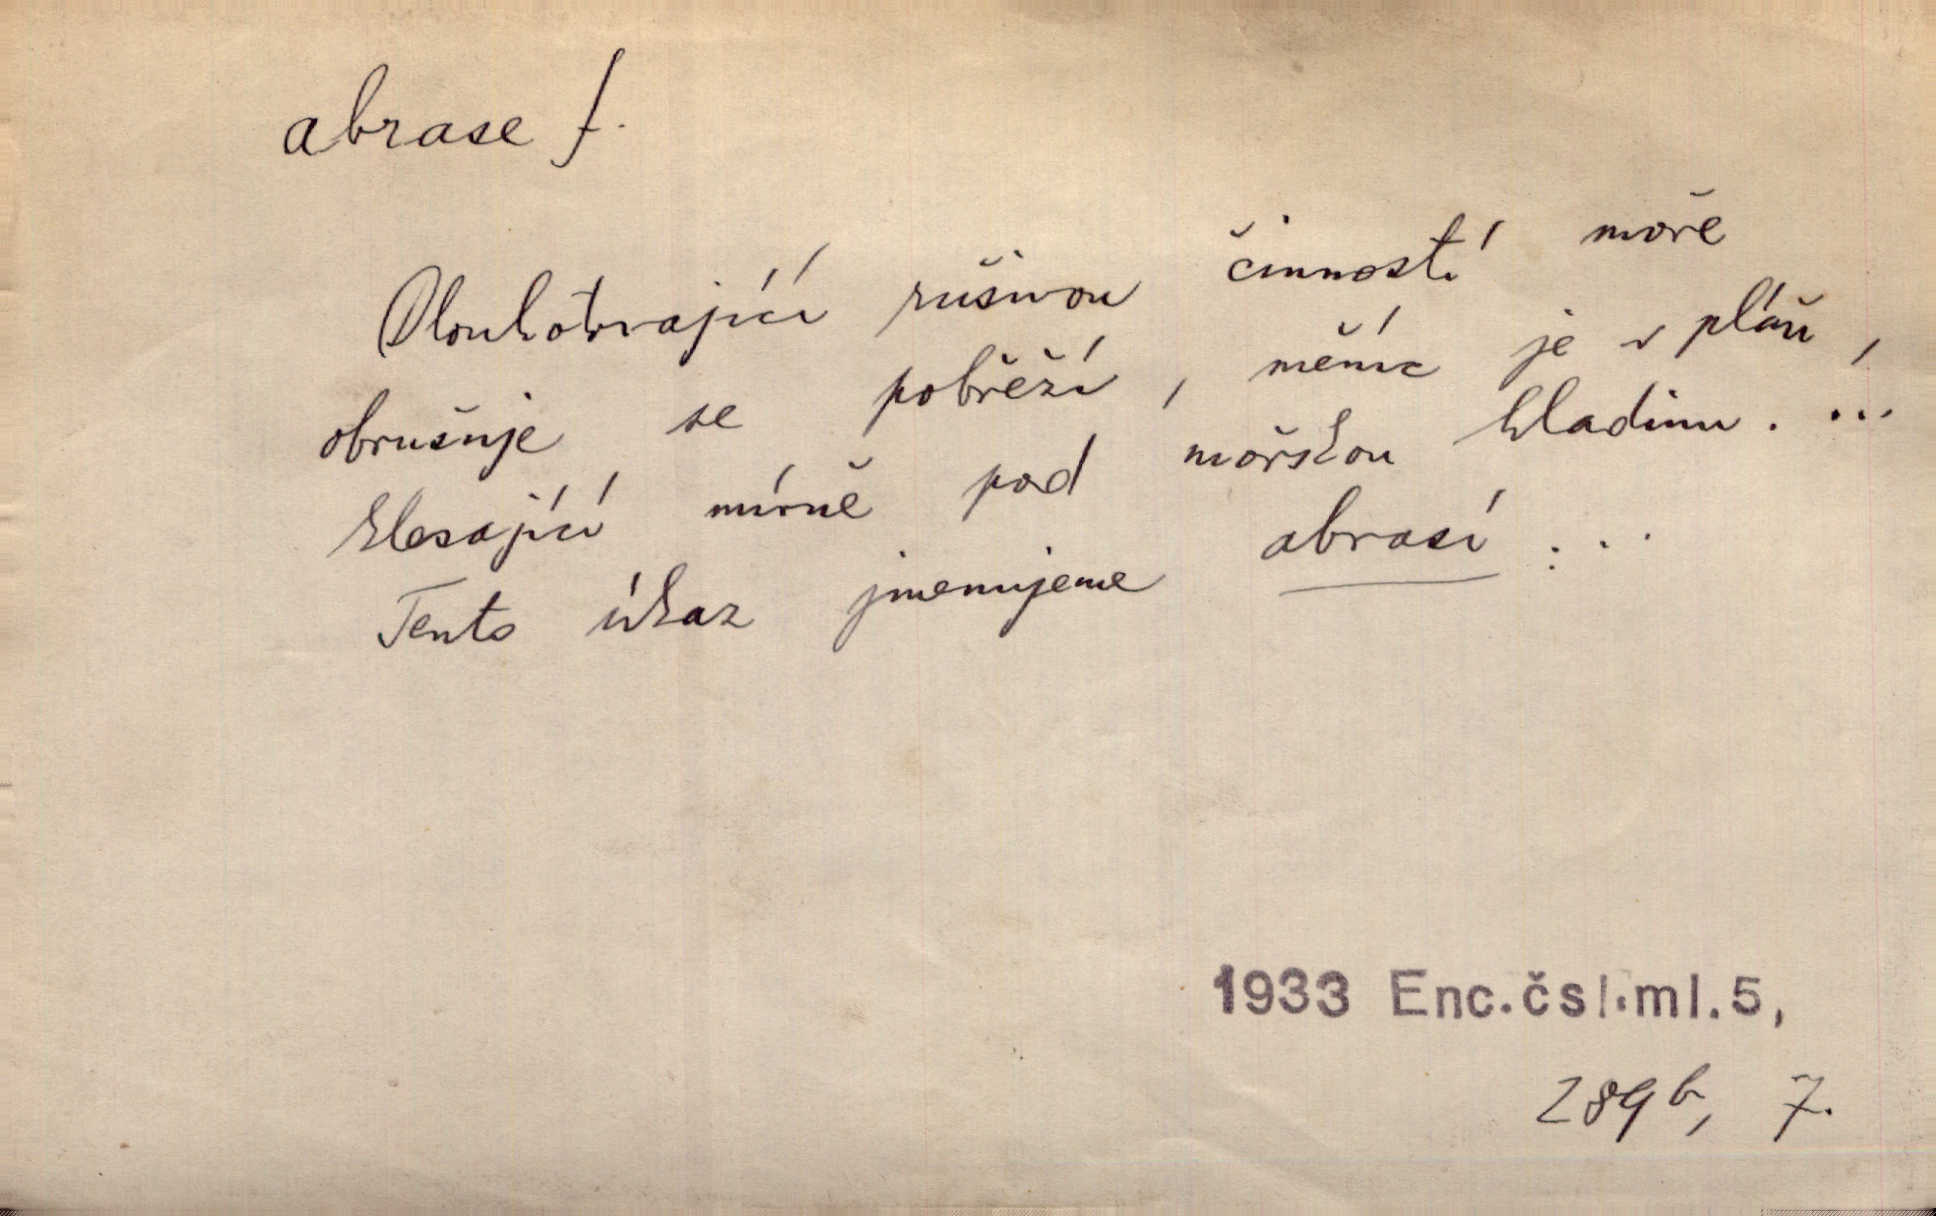 abrase f.
Dlouhotrvající rušivou činností moře
obrušuje se pobřeží, měníc je v pláň,
klesající mírně pod mořskou hladinu. ...
Tento úkaz jmenujeme abrasí: ...
1933 Enc.čsl.ml.5,
289b, 7.